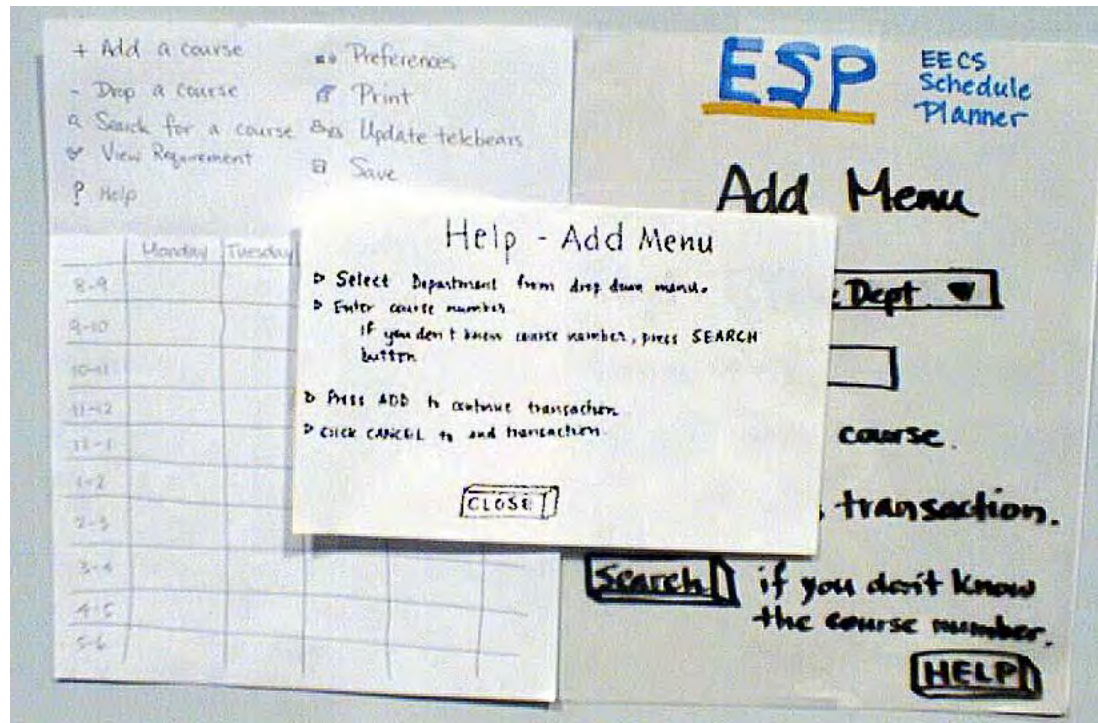 + Add a course
- Drop a course
Search for a course
View Requirement
? Help
Preferences
Print
Update telebears
Save
Monday Tuesday
8-9
9-10
10-11
11-12
12-1
1-2
2-3
3-4
4-5
5-6
Help - Add Menu
Select Department from drop down menu.
Enter course number
If you don't know course number, press SEARCH
button
Press ADD to continue transaction
Click CANCEL to end transaction.
CLOSE
ESP
EECS
Schedule
Planner
Add Menu
Dept.
course.
transaction.
Search if you don't know
the course number.
HELP